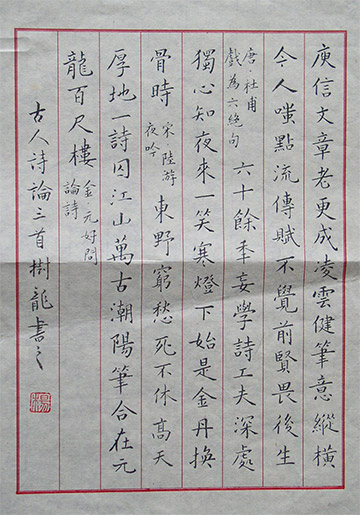 庾信文章老更成凌雲健筆意縱橫
今人嗤點流傳賦不覺前賢畏後生
唐·杜甫
戲為六絕句
六十餘秊妄學詩工夫深處
獨心知夜來一笑寒燈下始是金丹換
骨時
宋陸游
夜吟
東野窮愁死不休高天
厚地一詩囚江山萬古潮陽筆合在元
龍百尺樓
金元好問
論詩
古人詩論三首樹龍書之